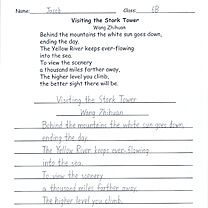 Name: Jacob Class: 6B
Visiting the Stork Tower
Wang Zhihuan
Behind the mountains the white sun goes down,
ending the day.
The Yellow River keeps ever-flowing
into the sea.
To view the scenery
a thousand miles farther away,
The higher level you climb,
the better sight there will be.
Visiting the Stork Tower
Wang Zhihuan
Behind the mountains the white sun goes down,
ending the day.
The Yellow River keeps ever-flowing
into the sea.
To view the scenery
a thousand miles farther away,
The higher level you climb,